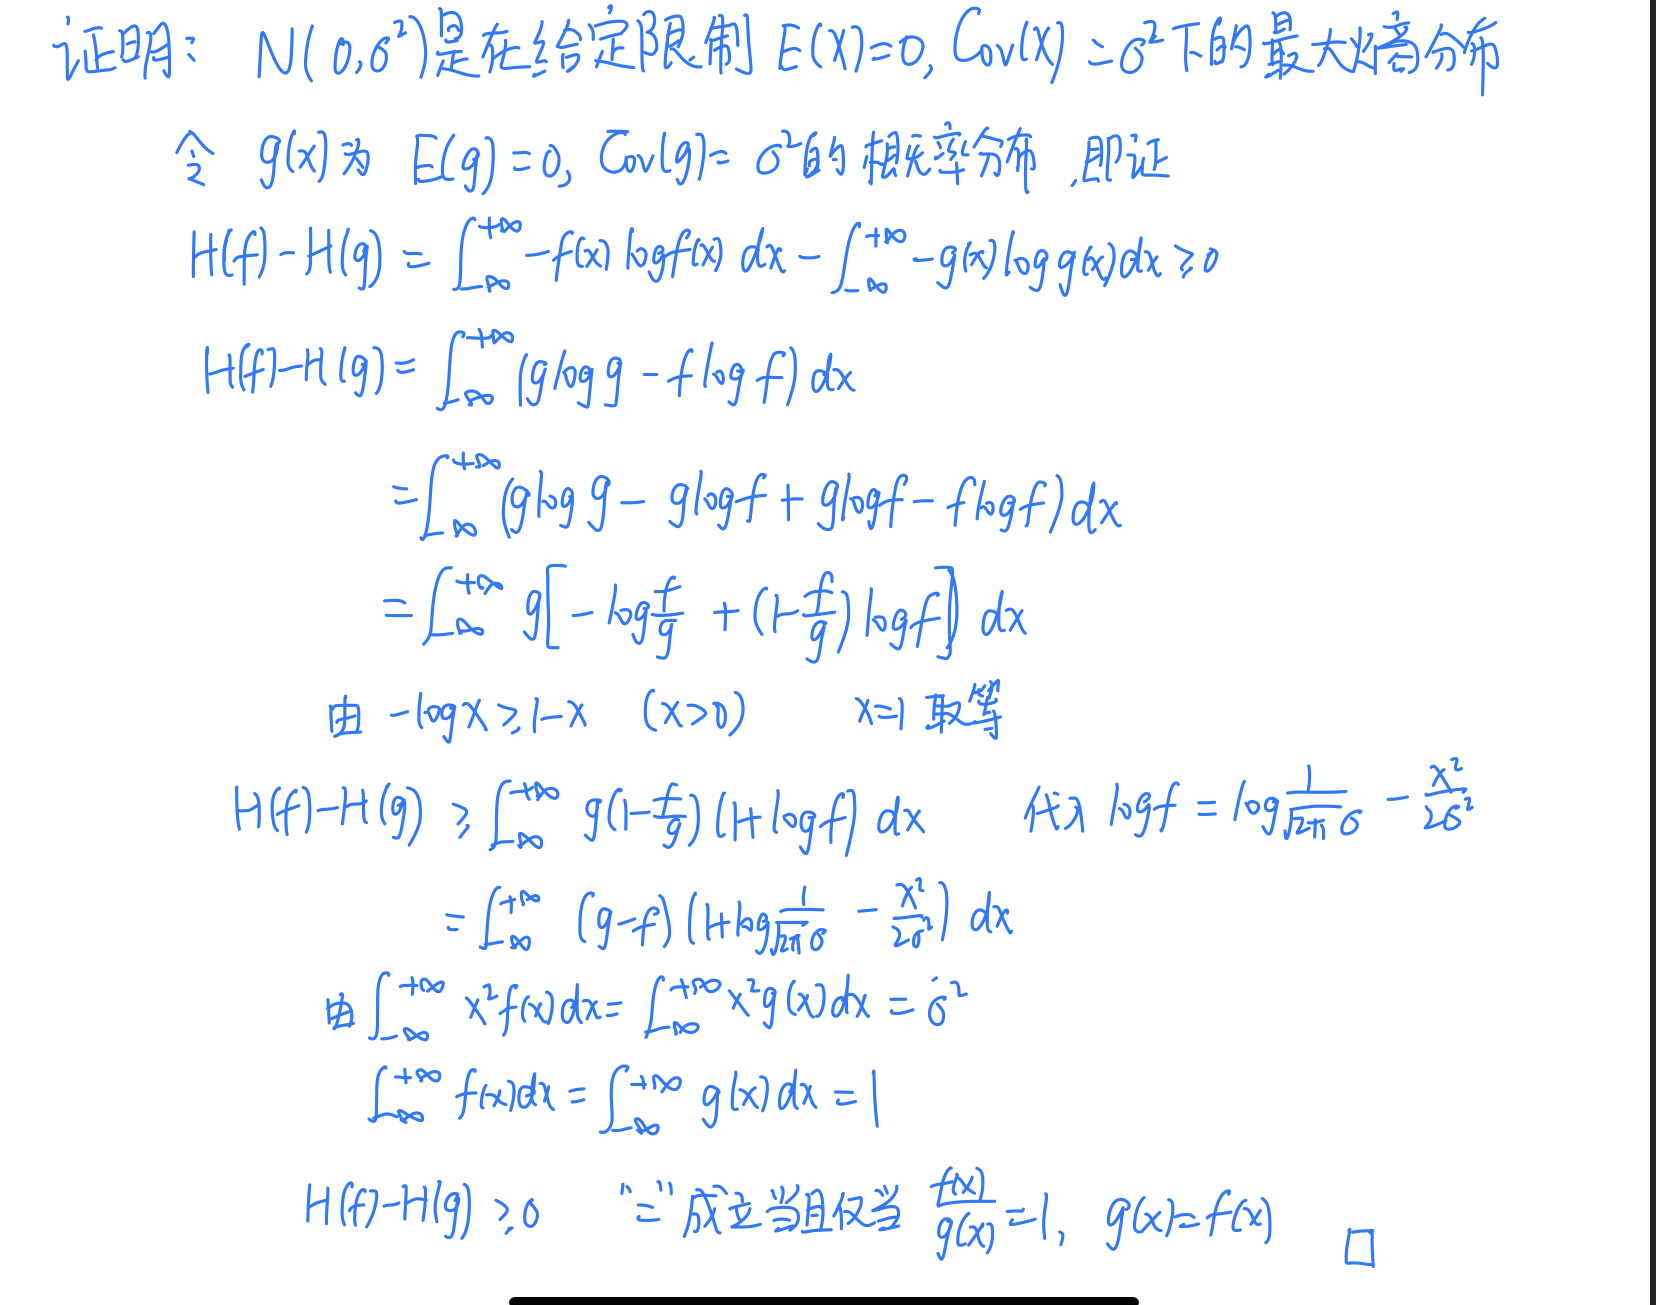 证明： N(0,σ²)是在给定限制 E(X)=0, Cov(X)=σ²下的最大熵分布
令 g(x)为 E(g)=0, Cov(g)=σ²的概率分布,即证
H(f)-H(g) = ∫_{-∞}^{+∞} -f(x) log f(x) dx - ∫_{-∞}^{+∞} -g(x) log g(x) dx ≥ 0
H(f)-H(g) = ∫_{-∞}^{+∞} (g log g - f log f) dx
= ∫_{-∞}^{+∞} (g log g - g log f + g log f - f log f) dx
= ∫_{-∞}^{+∞} g[-log f/g + (1-f/g) log f] dx
由 -log x ≥ 1-x (x>0) x=1 取等
H(f)-H(g) ≥ ∫_{-∞}^{+∞} g(1-f/g)(1+log f) dx 代入 log f = log 1/(√2π σ) - x²/2σ²
= ∫_{-∞}^{+∞} (g-f)(1+log 1/(√2π σ) - x²/2σ²) dx
由 ∫_{-∞}^{+∞} x² f(x) dx = ∫_{-∞}^{+∞} x² g(x) dx = σ²
∫_{-∞}^{+∞} f(x) dx = ∫_{-∞}^{+∞} g(x) dx = 1
H(f)-H(g) ≥ 0 "="成立当且仅当 f(x)/g(x) = 1, g(x)=f(x) □